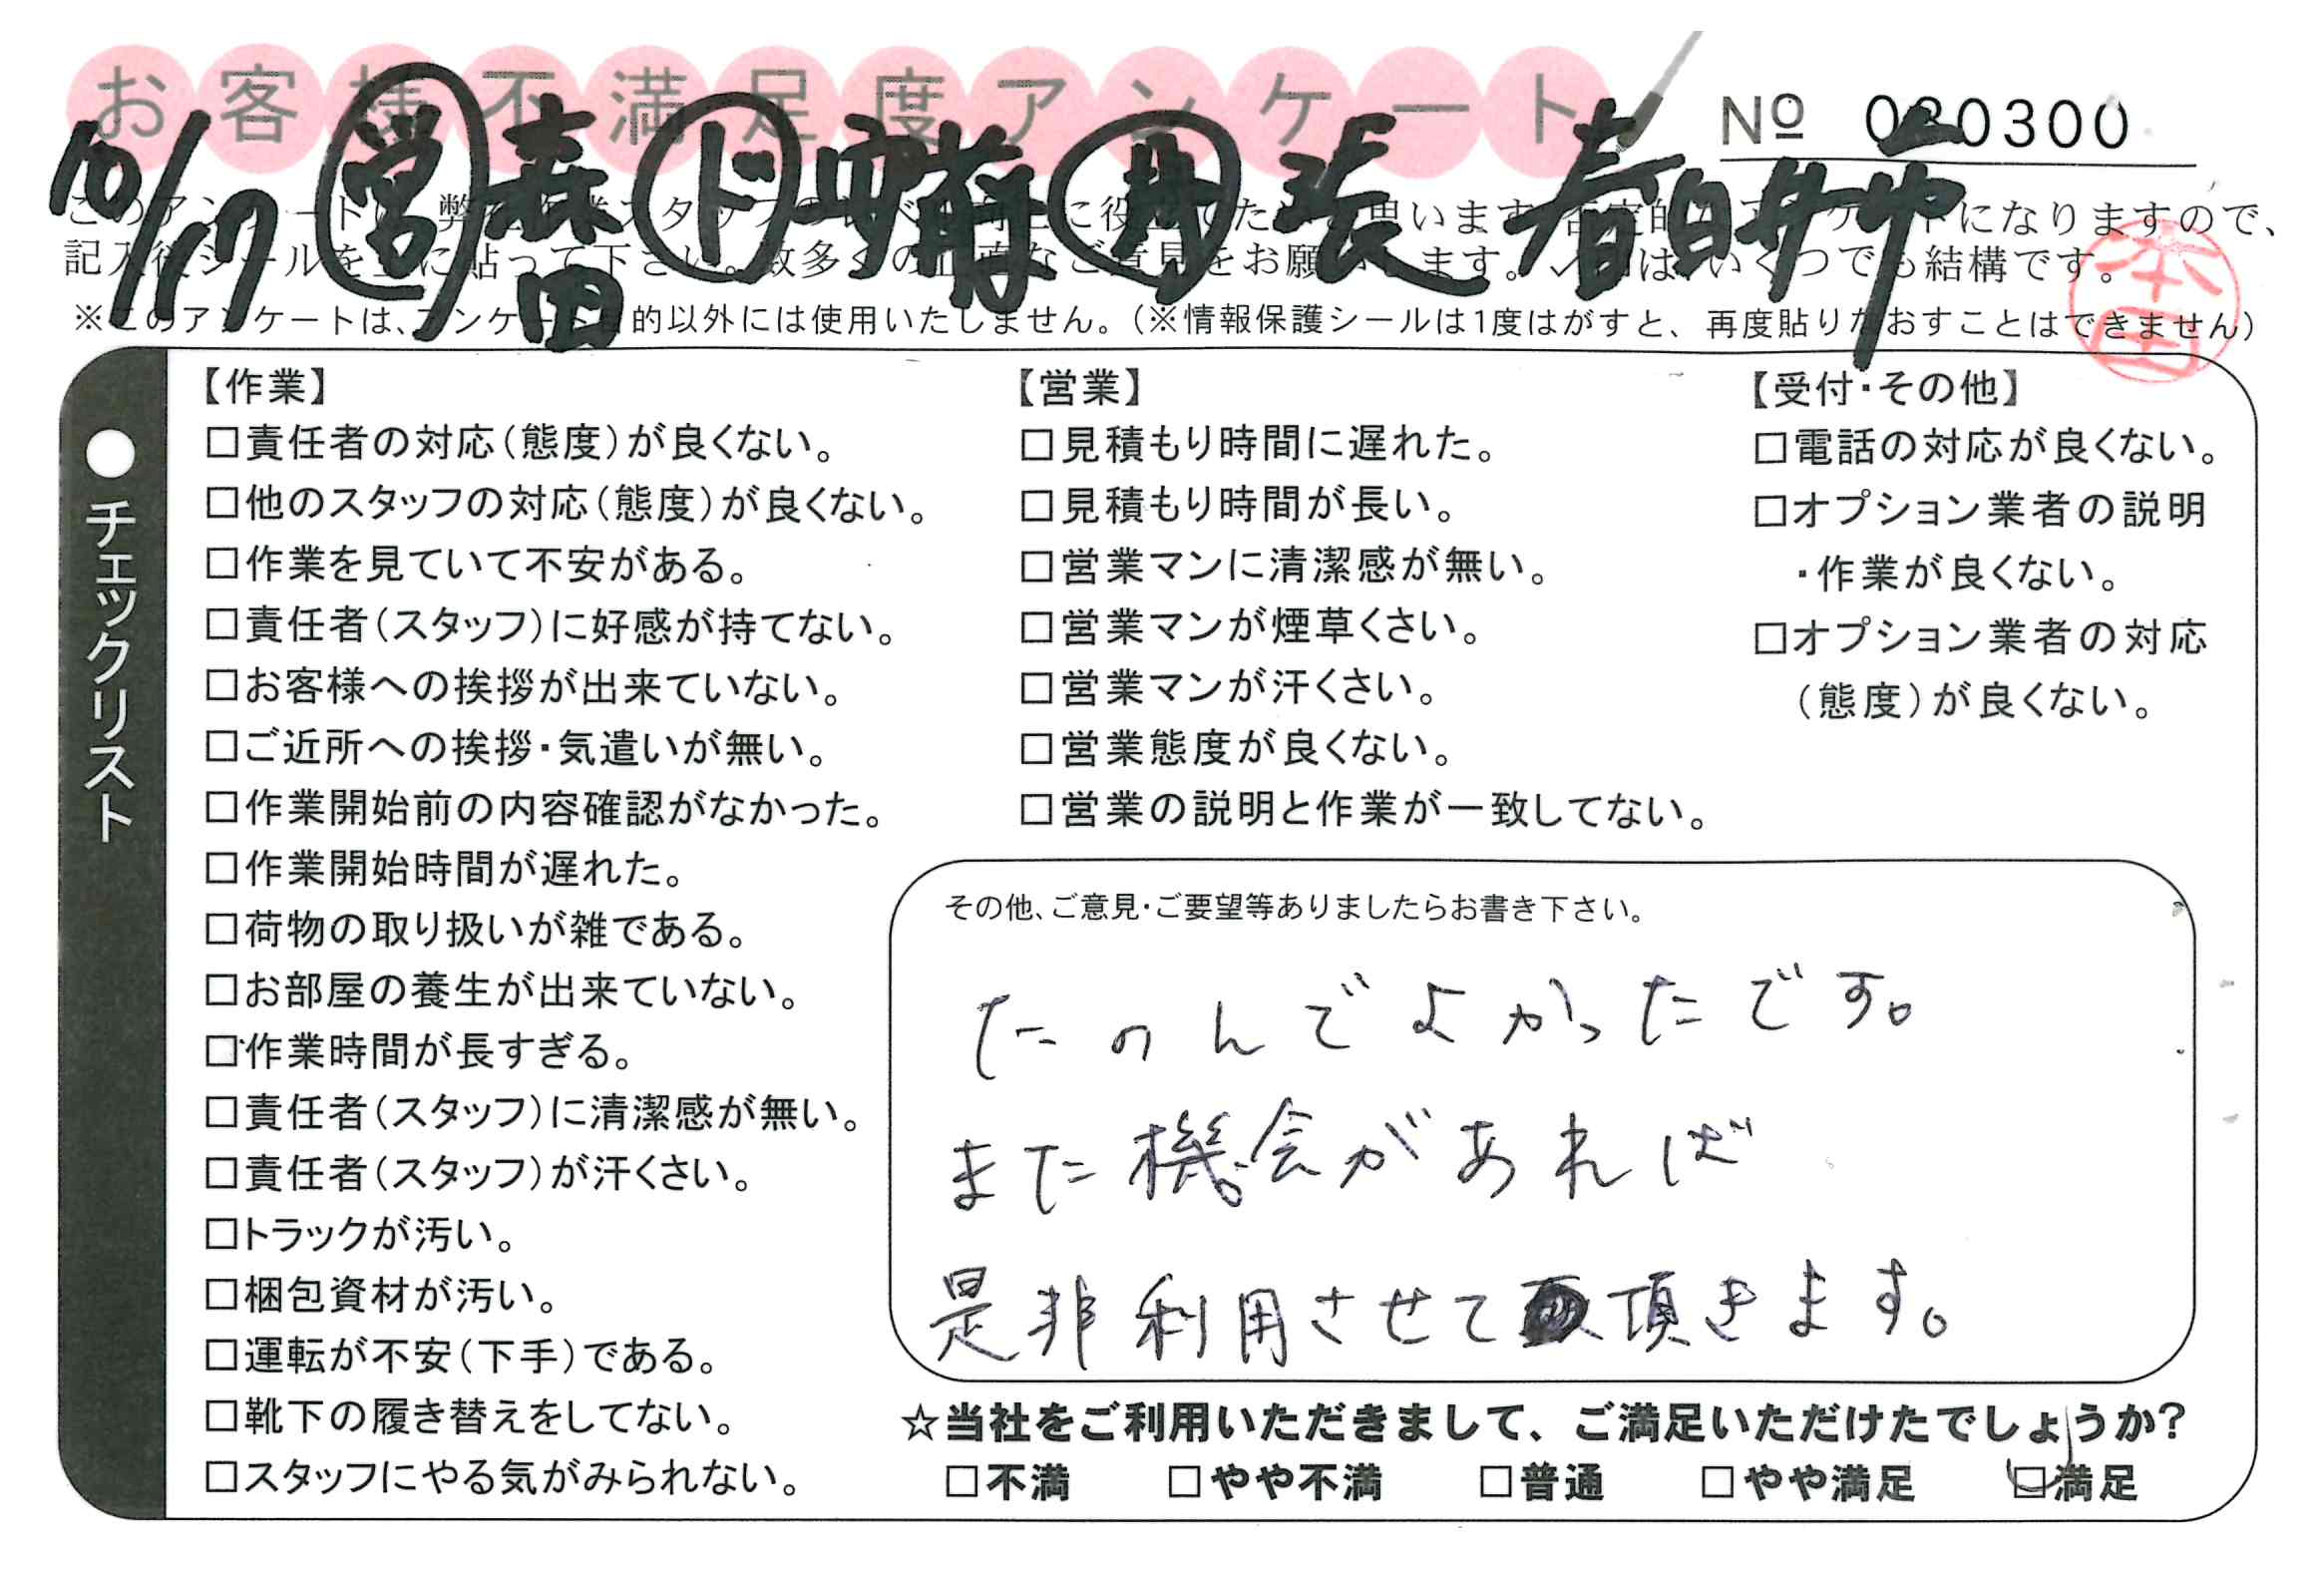 お客様不満足度アンケート
№ 030300
10/17 営 森田 ド 安藤 張 春日井市
このアンケート
思います。
になりますので、
記入後シールを上に貼って下さい。数多くの正直なご意見をお願いします。✓印は、いくつでも結構です。
※このアンケートは、アンケート目的以外には使用いたしません。（※情報保護シールは1度はがすと、再度貼りなおすことはできません）
本田
●チェックリスト
【作業】
□責任者の対応（態度）が良くない。
□他のスタッフの対応（態度）が良くない。
□作業を見ていて不安がある。
□責任者（スタッフ）に好感が持てない。
□お客様への挨拶が出来ていない。
□ご近所への挨拶・気遣いが無い。
□作業開始前の内容確認がなかった。
□作業開始時間が遅れた。
□荷物の取り扱いが雑である。
□お部屋の養生が出来ていない。
□作業時間が長すぎる。
□責任者（スタッフ）に清潔感が無い。
□責任者（スタッフ）が汗くさい。
□トラックが汚い。
□梱包資材が汚い。
□運転が不安（下手）である。
□靴下の履き替えをしてない。
□スタッフにやる気がみられない。
【営業】
□見積もり時間に遅れた。
□見積もり時間が長い。
□営業マンに清潔感が無い。
□営業マンが煙草くさい。
□営業マンが汗くさい。
□営業態度が良くない。
□営業の説明と作業が一致してない。
【受付・その他】
□電話の対応が良くない。
□オプション業者の説明
・作業が良くない。
□オプション業者の対応
（態度）が良くない。
その他、ご意見・ご要望等ありましたらお書き下さい。
たのんでよかったです。
また機会があれば
是非利用させて頂きます。
☆当社をご利用いただきまして、ご満足いただけたでしょうか？
□不満 □やや不満 □普通 □やや満足 ☑満足